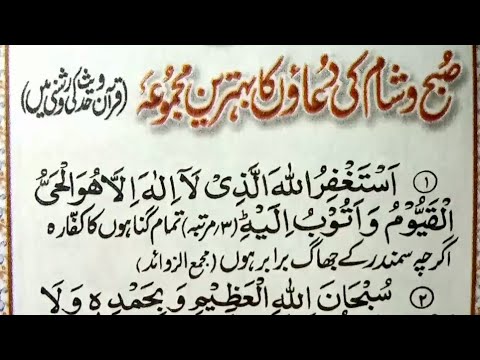 صبح و شام کی دعاؤں کا بہترین مجموعہ (قرآن و حدیث کی روشنی میں)
① اَسْتَغْفِرُ اللهَ الَّذِیْ لَآ اِلٰهَ اِلَّا هُوَ الْحَیُّ
الْقَیُّوْمُ وَ اَتُوْبُ اِلَیْهِ (۳؍مرتبہ) تمام گناہوں کا کفارہ
اگرچہ سمندر کے جھاگ برابر ہوں (مجمع الزوائد)
② سُبْحَانَ اللهِ الْعَظِیْمِ وَ بِحَمْدِهٖ وَلَا